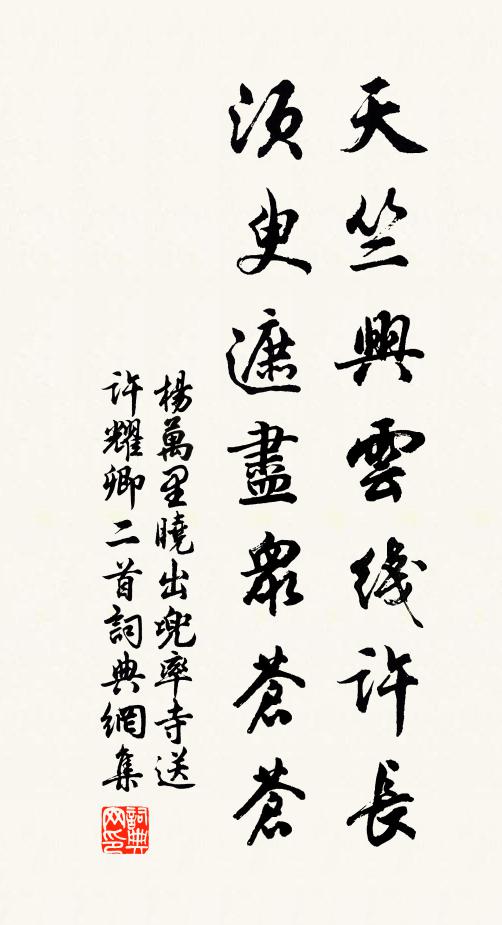 天竺興雲线許長
須臾遮盡衆蒼蒼
楊萬里曉出兜率寺送
許耀卿二首詞典網集
詞典網印